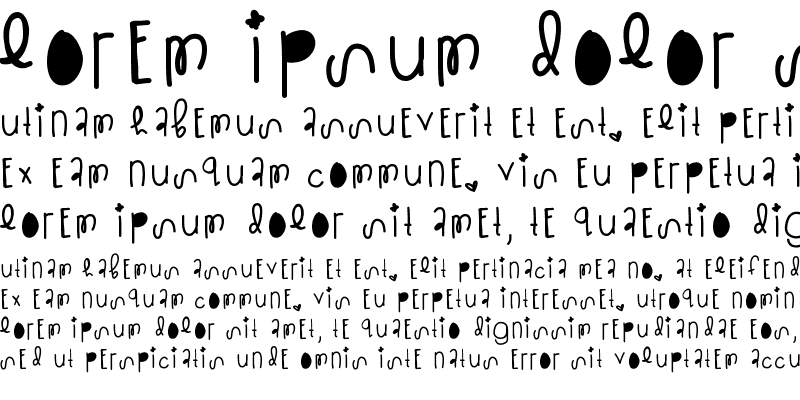 lorem ipsum dolor s
utinam habemus assueverit et est. elit perti
ex eam nusquam commune. vis eu perpetua i
lorem ipsum dolor sit amet, te quaestio dig
utinam habemus assueverit et est. elit pertinacia mea no. at eleifend
ex eam nusquam commune. vis eu perpetua interesset. utroque nomin
lorem ipsum dolor sit amet, te quaestio dignissim repudiandae eos,
sed ut perspiciatis unde omnis iste natus error sit voluptatem accu